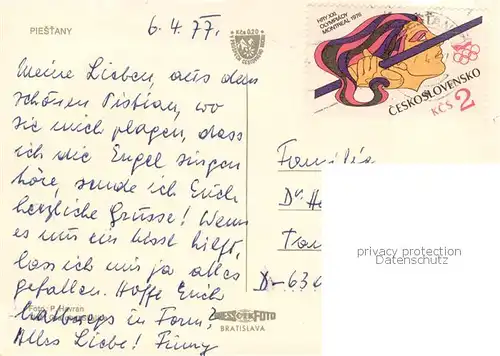 PIEŠŤANY
6.4.77.
Kčs 0,20
Meine Lieben, aus dem
schönen Pistian, wo
sie mich plagen, dass
ich die Engel singen
höre, sende ich Euch
herzliche Grüsse! Wenn
es nur ein bisst hilft,
lass ich mir ja alles
gefallen. Hoffe Euch
halbwegs in Form?
Alles Liebe!
Foto: P. Havran
PRESSFOTO
BRATISLAVA
HRY XXI.
OLYMPIÁDY
MONTREAL 1976
ČESKOSLOVENSKO
KČS 2
Familie
Dr He
D-636
privacy protection
Datenschutz